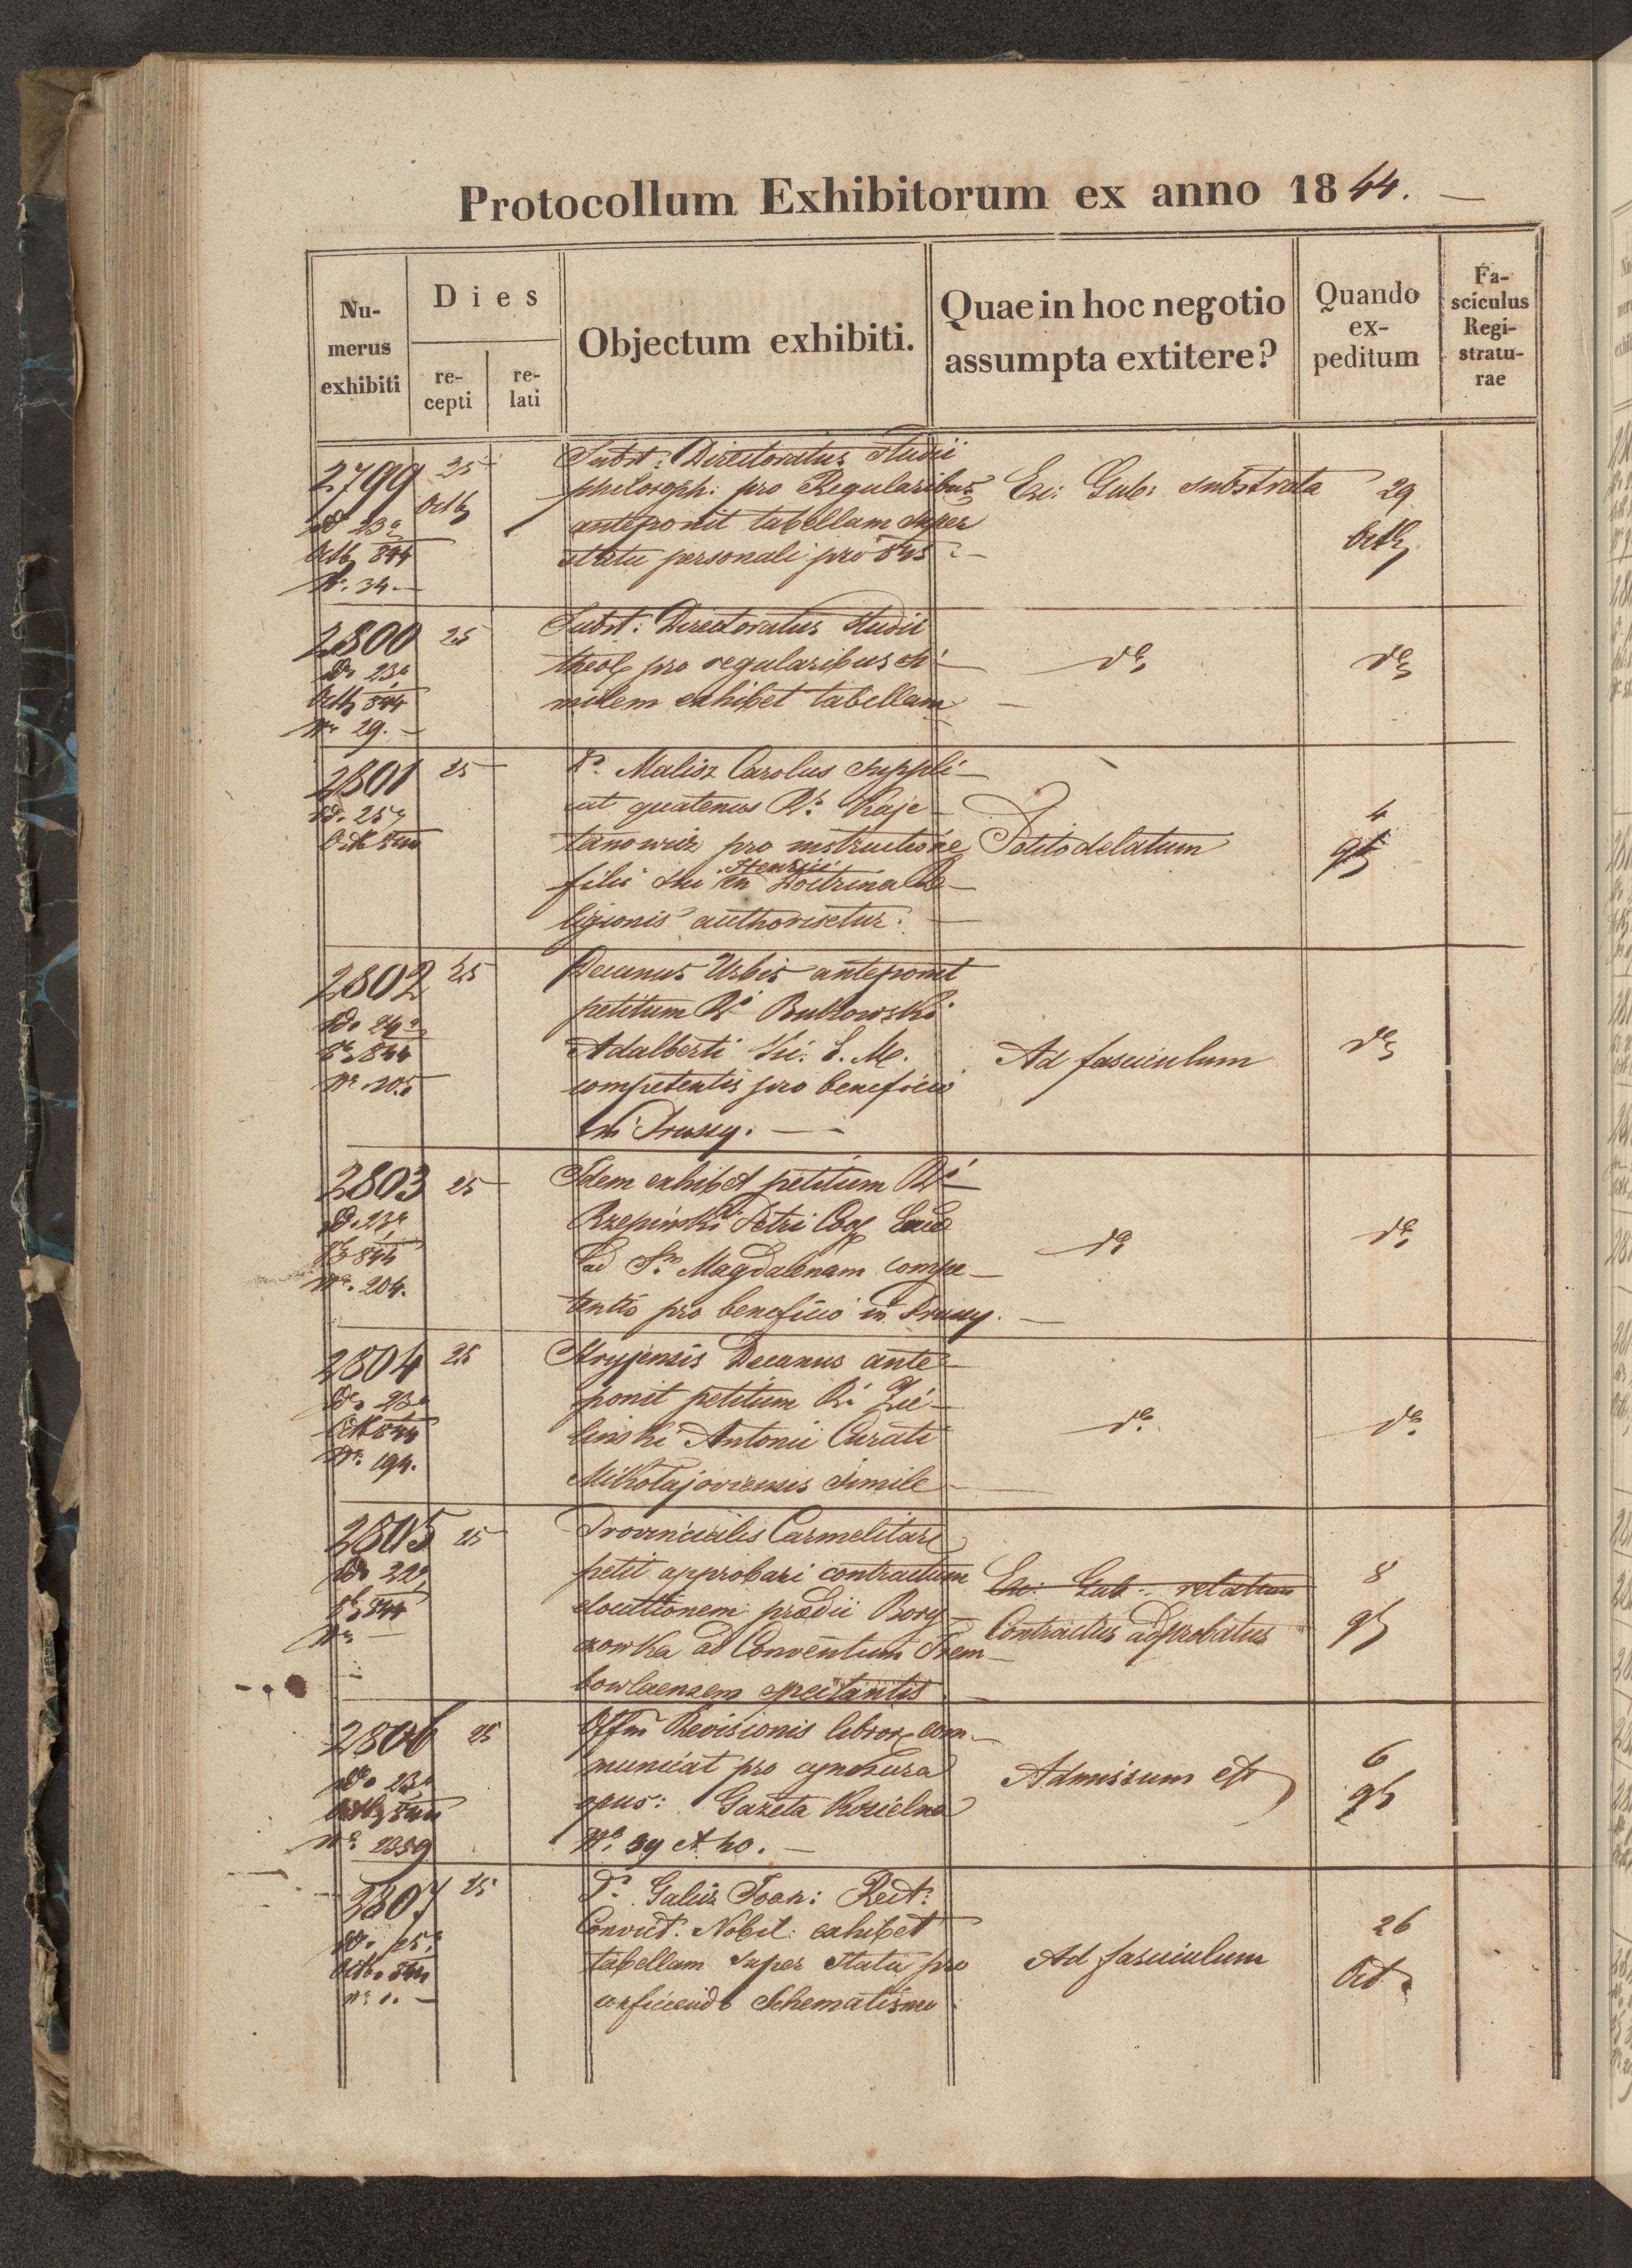 Protocollum Exhibitorum ex anno 1844.
Numerus exhibiti
Dies
recepti
relati
Objectum exhibiti.
Quae in hoc negotio assumpta extitere?
Quando expeditum
Fasciculus Registraturae
2799
25
Octb
dd 23a
Octb 844
Nr. 34.
Subst: Directoratus Studii
philosoph: pro Regularibus
anteponit tabellam super
statu personali pro 845
Exc: Gub: substrata
29
Octb
2800
25
dd 23a
Octb 844
Nr 29.
Subst: Directoratus Studii
theol pro regularibus si-
milem exhibet tabellam
do
do
2801
25
dd. 25
Octb 844
Malisz Carolus suppli-
cat quatenus Rs. Kaje-
tanowicz pro instructione
filii sui Henrici in Doctrina Re-
ligionis authorisetur.
Petito delatum
4
9b
2802
25
dd. 24a
844
Nr. 205
Decanus Urbis anteponit
petitum Rdi Butkowski
Adalberti Vic. E. M.
competentis pro beneficio
in Prusy.
Ad fasciculum
do
2803
25
dd. 23a
844
Nr. 204.
Idem exhibet petitum Rdi
Rzepinski Petri Coop
ad S. Magdalenam compe-
tentis pro beneficio in Prusy.
do
do
2804
25
dd. 23a
Octb 844
Nr. 194.
Stryjensis Decanus ante-
ponit petitum R. Zie-
linski Antonii Curati
Mikołajoviensis simile
do
do
2805
25
dd 22a
844
Nr
Provincialis Carmelitar
petit approbari contractum
elocutionem praedii Bory-
czowka ad Conventum Trem-
bowlaensem spectantis
Exc: Gub: relatum
Contractus adprobatus
8
9b
2806
25
dd. 23a
Octb 844
Nr. 2359
Offm Revisionis libror com-
municat pro cynosura
opus: Gazeta Kościelna
Nr. 39 et 40.
Admissum est
6
9b
2807
25
dd. 25a
Octb. 844
Nr 1.
Galicz Joan: Rect:
Convict. Nobil: exhibet
tabellam super statu pro
conficiendo Schematismo
Ad fasciculum
26
Oct